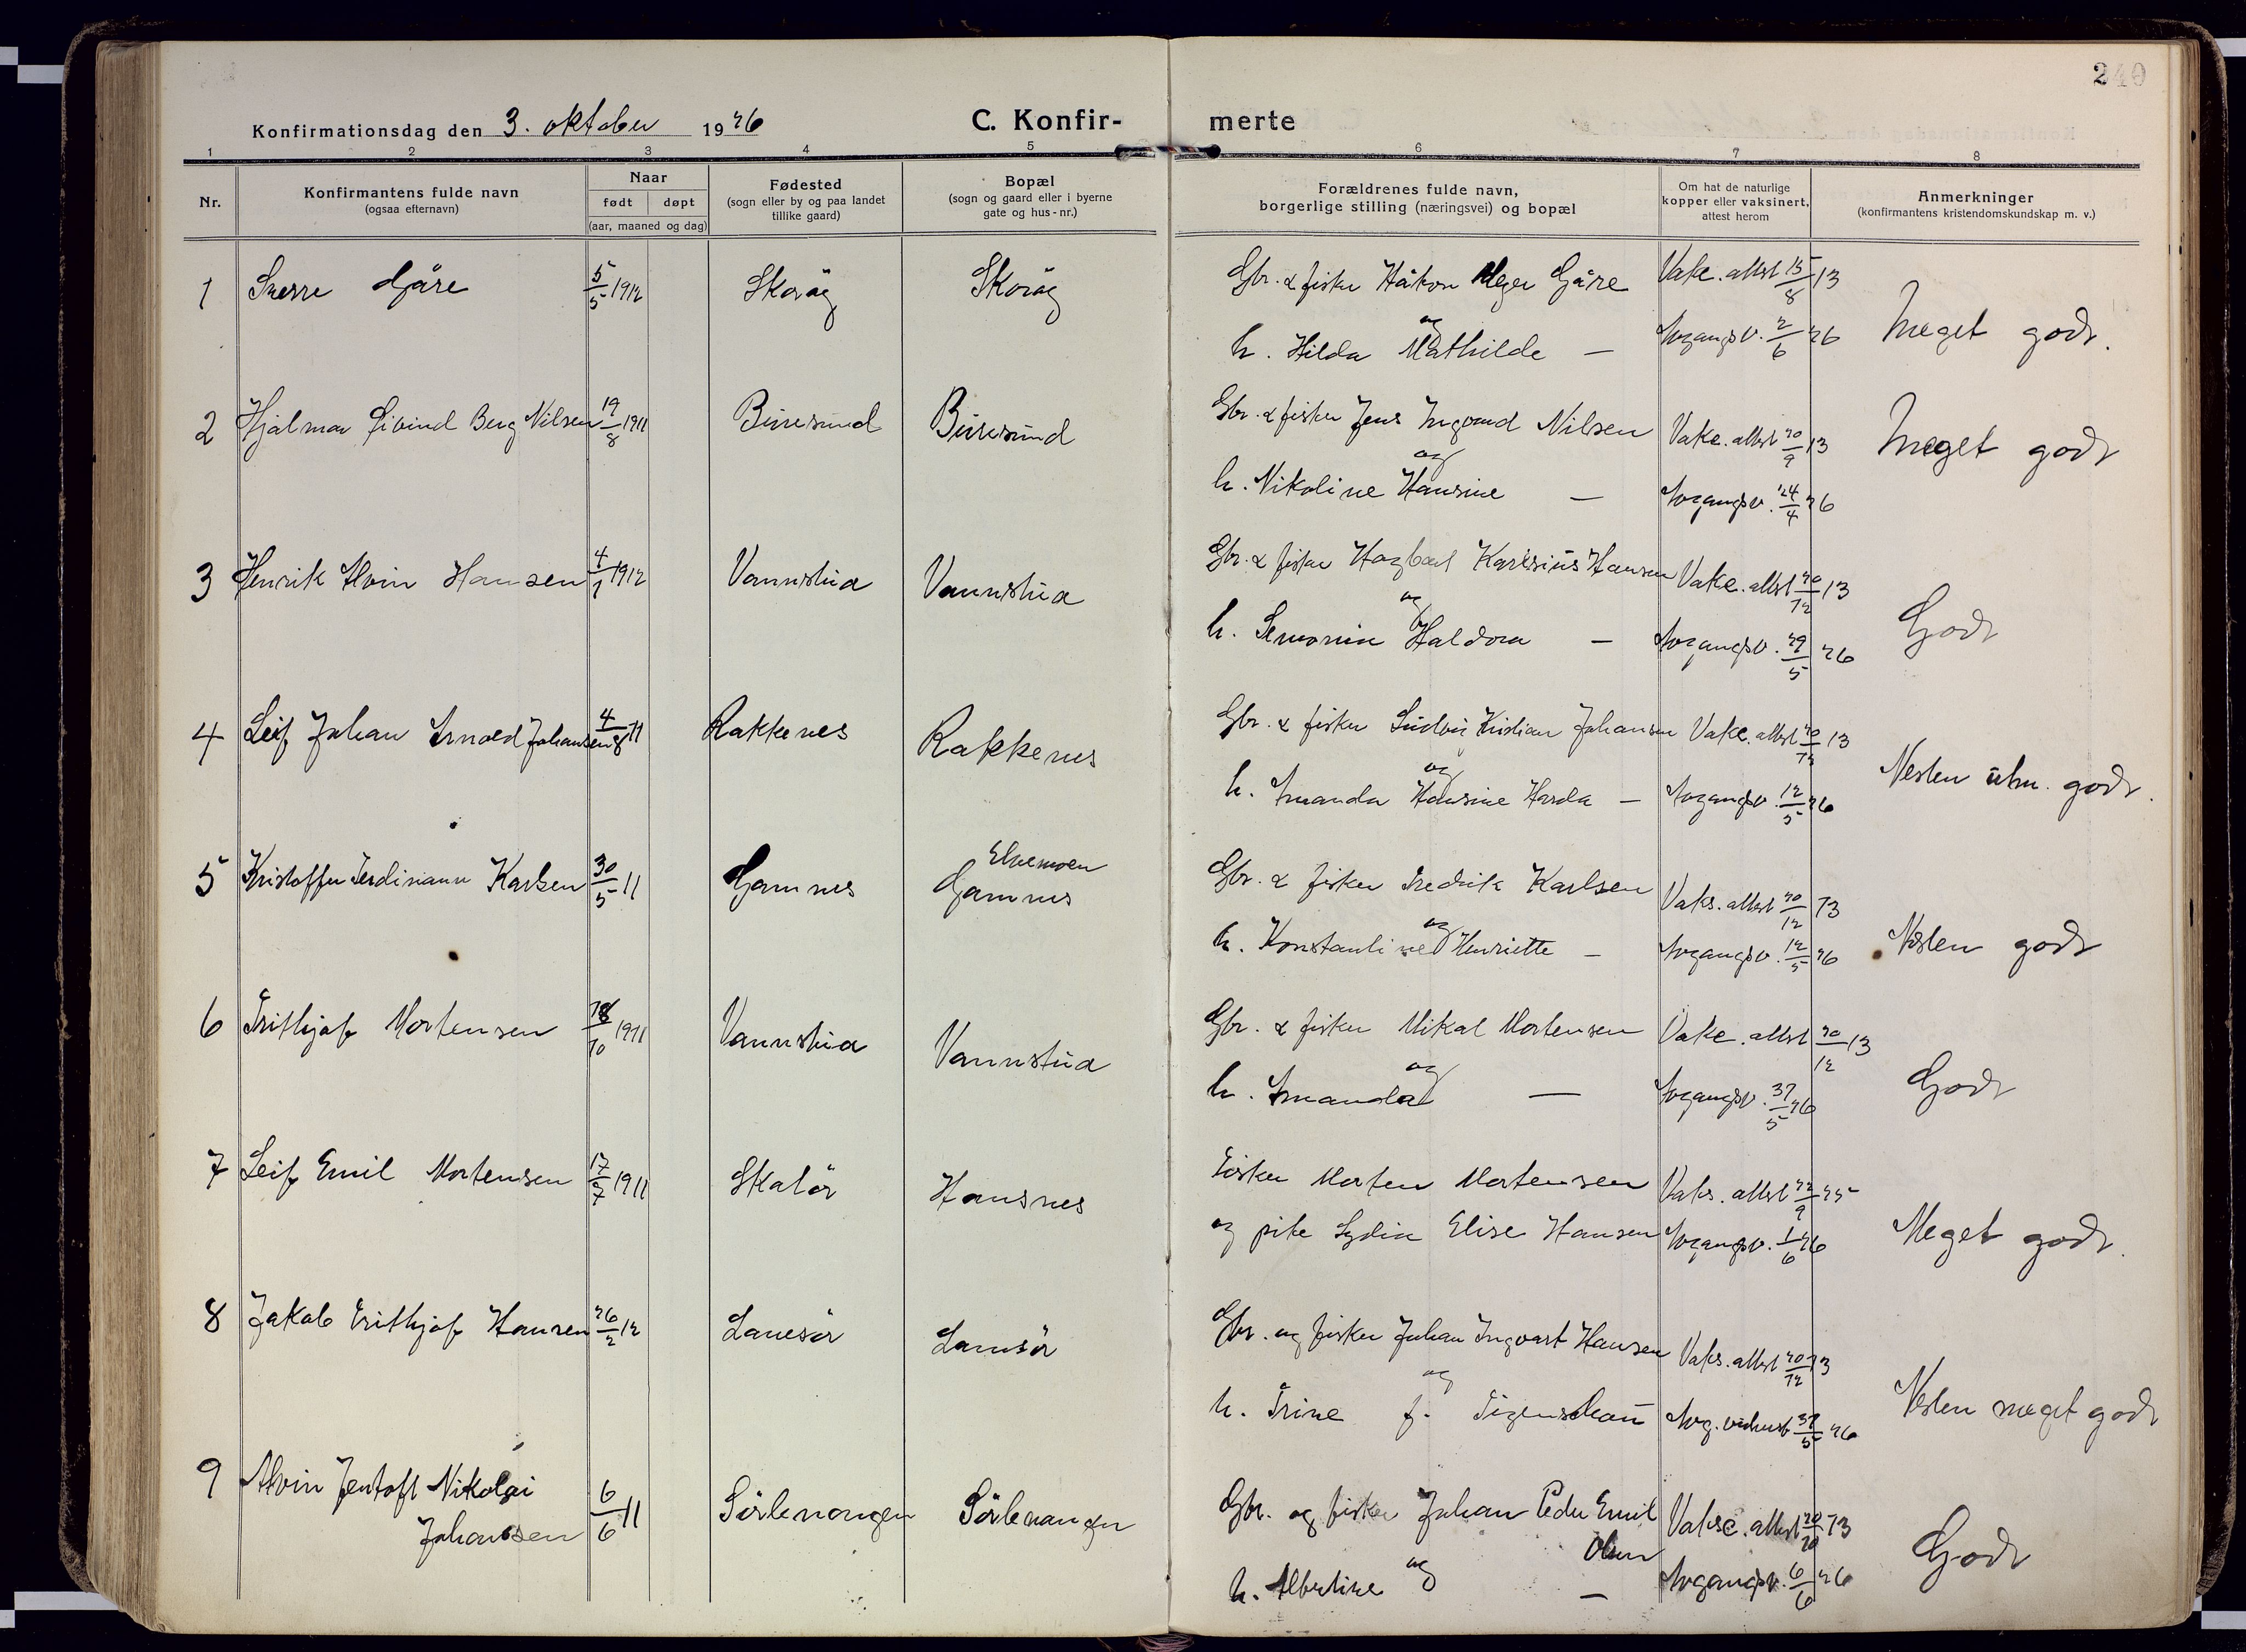 240
Konfirmationsdag den 3. oktober 1926 C. Konfirmerte
1 2 3 4 5 6 7 8
Nr. Konfirmantens fulde navn (ogsaa efternavn) Naar født døpt (aar, maaned og dag) Fødested (sogn eller by og paa landet tillike gaard) Bopæl (sogn og gaard eller i byerne gate og hus-nr.) Forældrenes fulde navn, borgerlige stilling (næringsvei) og bopæl Om hat de naturlige kopper eller vaksinert, attest herom Anmerkninger (konfirmantens kristendomskundskap m. v.)
1 Sverre Gåre 5/5 1912 Skoråg Skoråg Gbr. & fisker Håkon Gåre Vakc. attest 15/8 13
og
h. Hilda Mathilde — Avgangsv. 2/6 26 Meget godt.
2 Hjalmar Øivind Berg Nilsen 19/8 1911 Burøsund Burøsund Gbr. & fisker Jens Ingvard Nilsen Vakc. attest 20/9 13 Meget godt
og
h. Nikoline Hansine — Avgangsv. 24/4 26
3 Henrik Alvin Hansen 4/1 1912 Vannstua Vannstua Gbr. & fisker Hagbart Hansen Vakc. attest 20/12 13
og
h. Haldora — Avgangsv. 29/5 26 Godt
4 Leif Johan Arnold Johansen 4/8 11 Rakkenes Rakkenes Gbr. & fisker Ludvig Kristian Johansen Vakc. attest 20/12 13
og
h. Amanda Hansine Harda — Avgangsv. 12/5 26 Nesten utm. godt.
5 Kristoffer Ferdinann Karlsen 30/5 11 Gamnes Elvemoen Gamnes Gbr. & fisker Fredrik Karlsen Vaks. attest 20/12 13
og
h. Konstantine Henriette — Avgangsv. 12/5 26 Nesten godt
6 Frithjof Mortensen 18/10 1911 Vannstua Vannstua Gbr. & fisker Mikal Mortensen Vakc. attest 20/12 13
og
h. Amanda — Avgangsv. 31/5 26 Godt
7 Leif Emil Mortensen 17/7 1911 Skatør Hansnes Fisker Morten Mortensen Vaks. attest 22/9 25
og pike Lydia Elise Hansen Avgangsv. 1/6 26 Meget godt.
8 Jakob Frithjof Hansen 26/2 12 Lanesør Lanesør Gbr. og fisker Johan Ingvart Hansen Vaks. attest 20/12 13
og
h. Trine f. Avg. vidnesb. 31/5 26 Nesten meget godt
9 Alvin Jentoft Nikolai
Johansen 6/6 11 Sørlenangen Sørlenangen Gbr. og fisker Johan Peder Emil
Olsen Vaksc. attest 20/10 13 Godt
og
h. Albertine — Avgangsv. 6/6 26